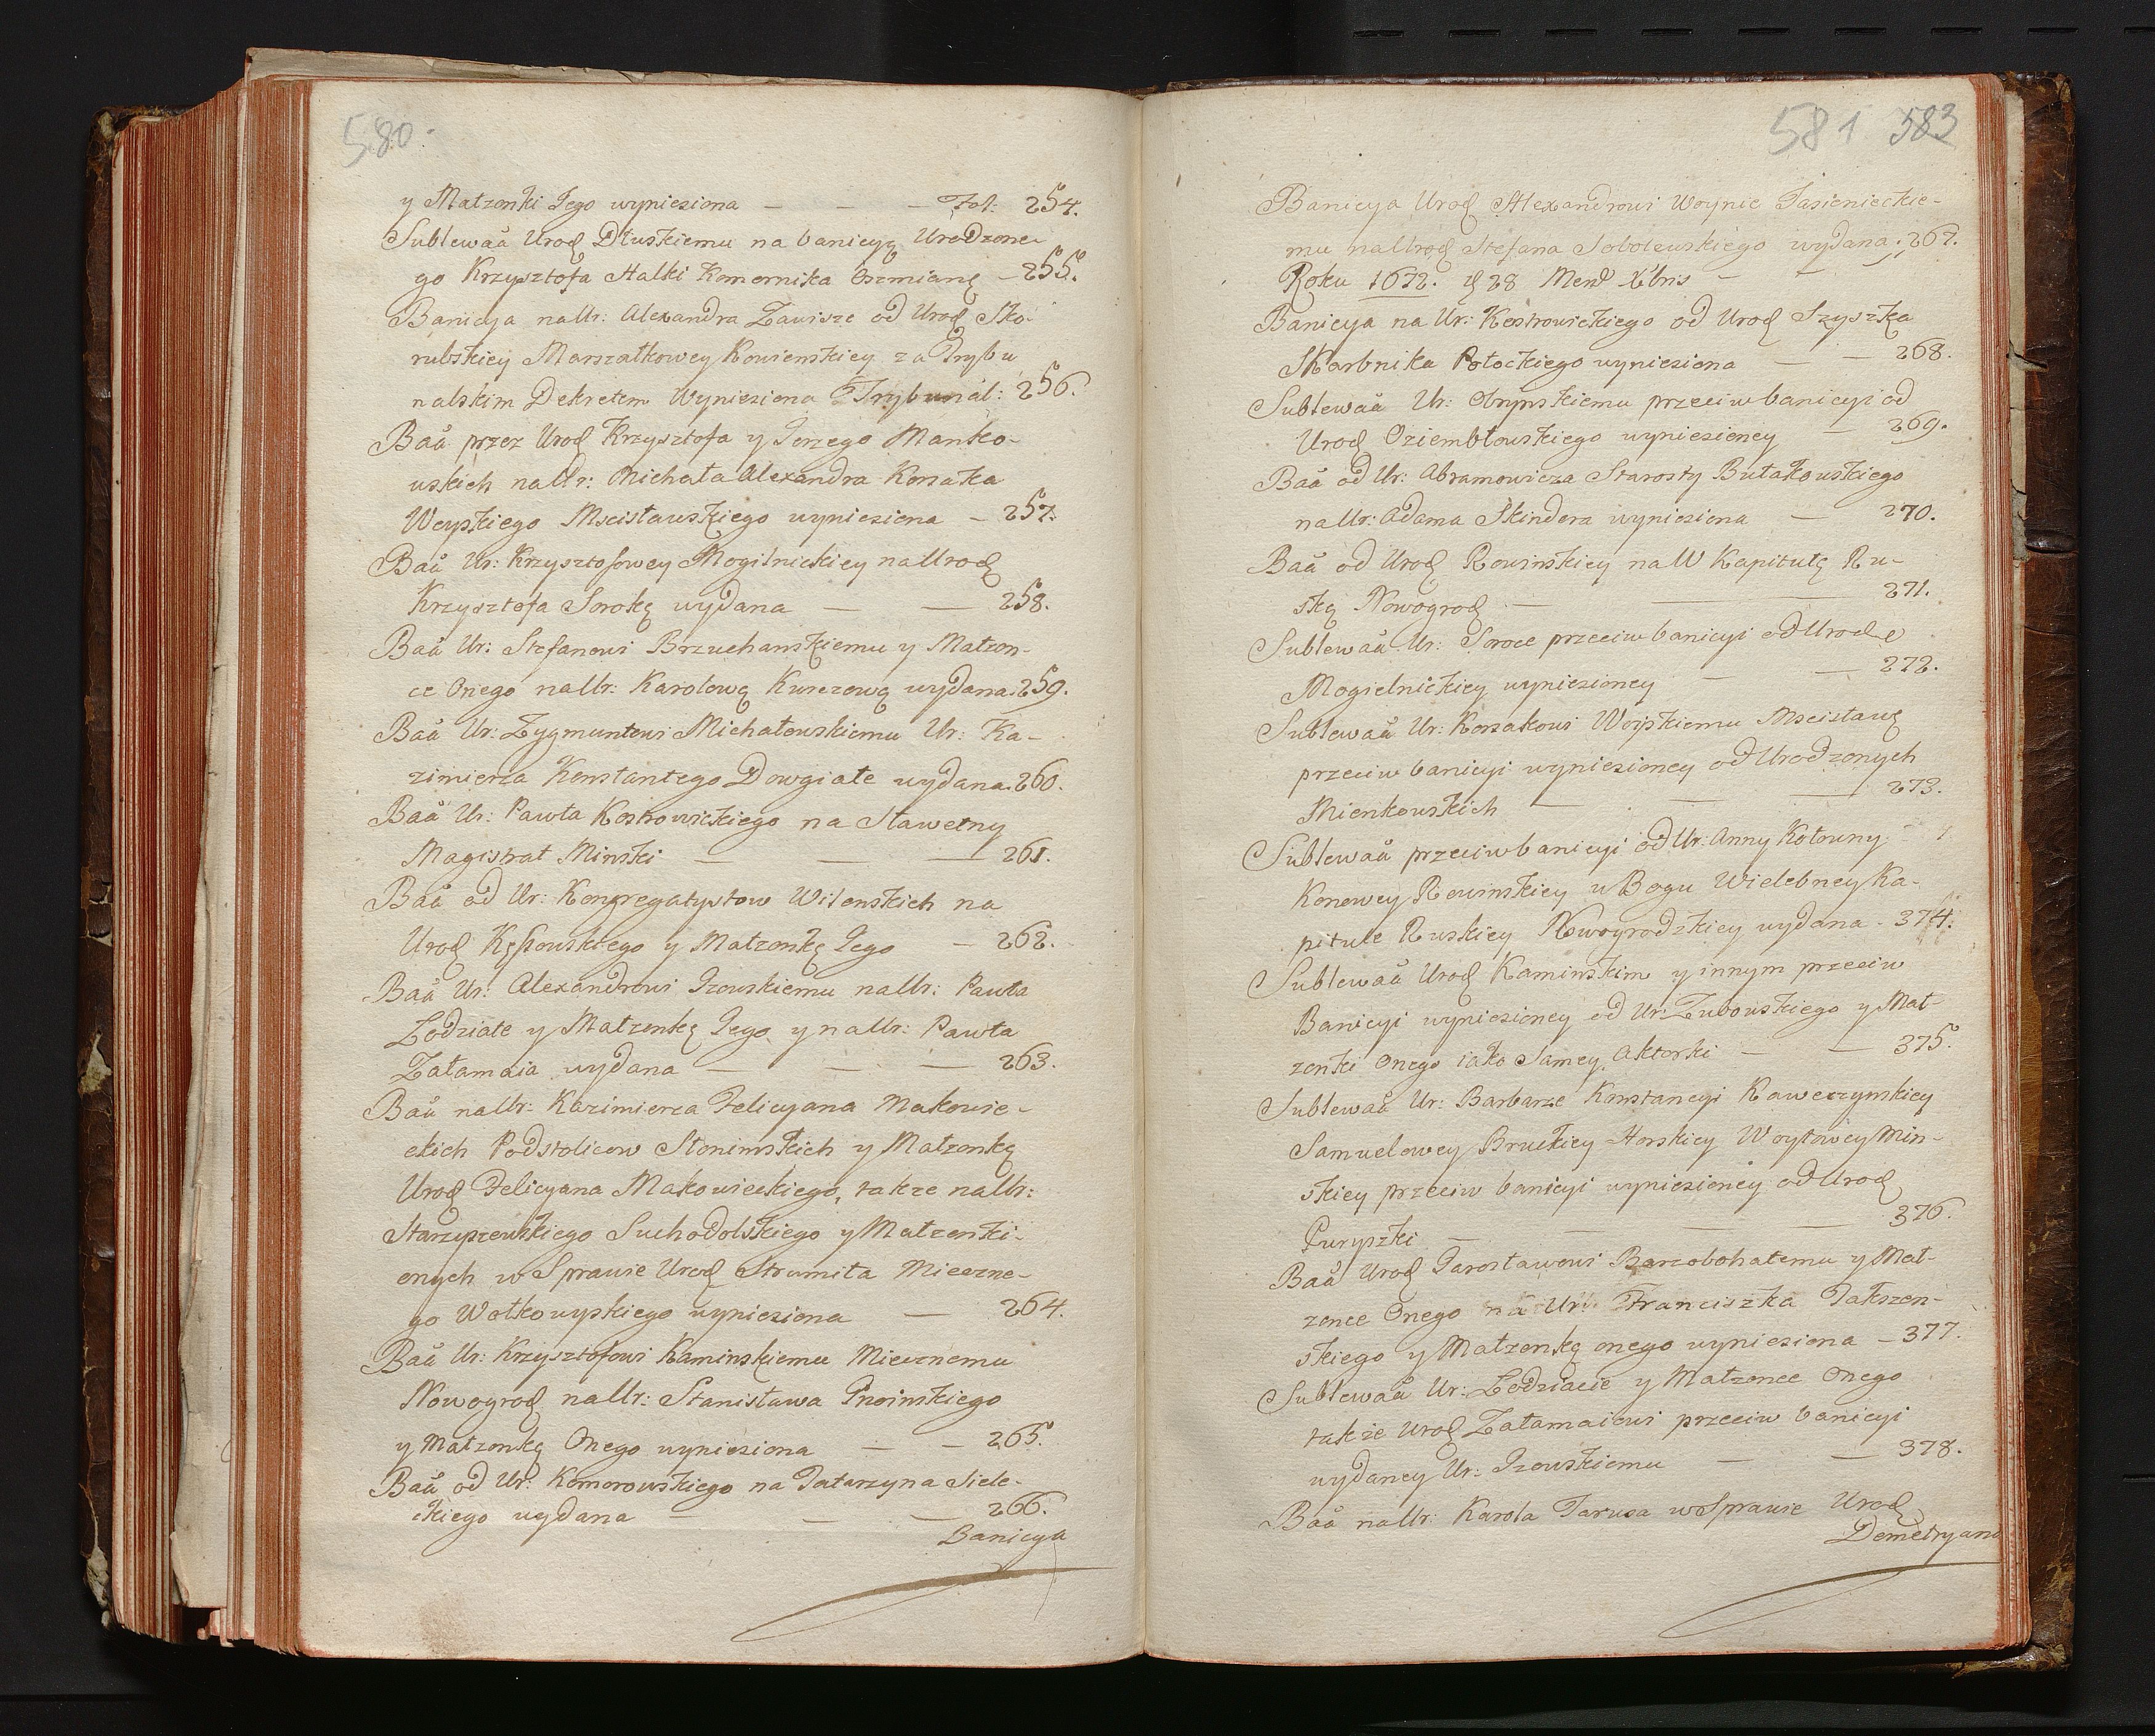 580.
y Małzonki Jego wyniesiona — — — Fol: 254.
Sublewaã Urod Dłuskiemu na banicyą Urodzone-
go Krzysztofa Halki Komornika Oszmianę — 255.
Banicya na Ur: Alexandra Zawisze od Urod Sko-
rubskiey Marszałkowey Kowienskiey za Trybu
nalskim Dekretem Wyniesiona Trybunal: 256.
Baã przez Urod Krzysztofa y Jerzego Manko-
wskich na Ur: Michała Alexandra Korsaka
Woyskiego Mscisławskiego wyniesiona — 257.
Baã Ur: Krzysztofowey Mogilnickiey na Urod
Krzysztofa Sorokę wydana — — 258.
Baã Ur: Stefanowi Brzuchanskiemu y Małzon-
ce Onego na Ur: Karolową Kurczową wydana. 259.
Baã Ur: Zygmuntowi Michałowskiemu Ur: Ka-
zimierza Konstantego Dowgiałe wydana. 260.
Baã Ur: Pawła Kostrowickiego na Sławetny
Magistrat Minski — — — 261.
Baã od Ur: Kongregatystow Wilenskich na
Urod Kęsowskiego y Małzonkę Jego — 262.
Baã Ur: Alexandrowi Izowskiemu na Ur: Pawła
Łodziate y Małzonkę Jego y na Ur: Pawła
Załamaia wydana — — — 263.
Baã na Ur: Kazimierza Felicyana Makowie-
ckich Podstolicow Słonimskich y Małzonkę
Urod Felicyana Makowieckiego, także na Ur:
Starzyszewskiego Suchodolskiego y Małzonki-
onych w Sprawie Urod Strumiła Mieczne-
go Wołkowyskiego wyniesiona — 264.
Baã Ur: Krzysztofowi Kaminskiemu Miecznemu
Nowogrod na Ur: Stanisława Gnoinskiego
y Małzonkę Onego wyniesiona — — 265.
Baã od Ur: Komorowskiego na Tatarzyna Siele-
ckiego wydana — — — 266.
Banicya
581 583
Banicya Urod Alexandrowi Woynie Jasienieckie-
mu na Urod Stefana Sobolewskiego wydana. 267.
Roku 1672. d 28 Men Xbris — — —
Banicya na Ur: Kostrowickiego od Urod Szyszka
Skarbnika Połockiego wyniesiona — — 268.
Sublewaã Ur: Obrynskiemu przeciw banicyi od
Urod Dziembłowskiego wyniesioney — 269.
Baã od Ur: Abramowicza Starosty Butakowskiego
na Ur: Adama Skindera wyniesiona — 270.
Baã od Urod Rowinskiey na W Kapitułę Ru-
ską Nowogrod — — 271.
Sublewaã Ur: Soroce przeciw banicyi od Urod e
Mogielnickiey wyniesioney — — 272.
Sublewaã Ur: Korsakowi Woyskiemu Mscisławę
przeciw banicyi wyniesioney od Urodzonych
Mienkowskich — — — 273.
Sublewaã przeciw banicyi od Ur: Anny Kotowny
Konowey Rowinskiey w Bogu Wielebney Ka-
pitule Ruskiey Nowogrodzkiey wydana — 374.
Sublewaã Urod Kaminskim y innym przeciw
Banicyi wyniesioney od Ur: Zubowskiego y Mał-
zonki Onego iako Samey Aktorki — — 375.
Sublewaã Ur: Barbarze Konstancyi Kaweczynskiey
Samuelowey Bruckiey Horskiey Woytowey Min-
skiey przeciw banicyi wyniesioney od Urod
Puryszki — — — 376.
Baã Urod Jarosławowi Barzobohatemu y Mał-
zonce Onego na Ur: Franciszka Jakszen-
skiego y Małzonkę onego wyniesiona — 377.
Sublewaã Ur: Łodziacie y Małzonce Onego
także Urod Załamaiowi przeciw banicyi
wydaney Ur: Izowskiemu — — 378.
Baã na Ur: Karola Jarusa w Sprawie Urod
Demetryana